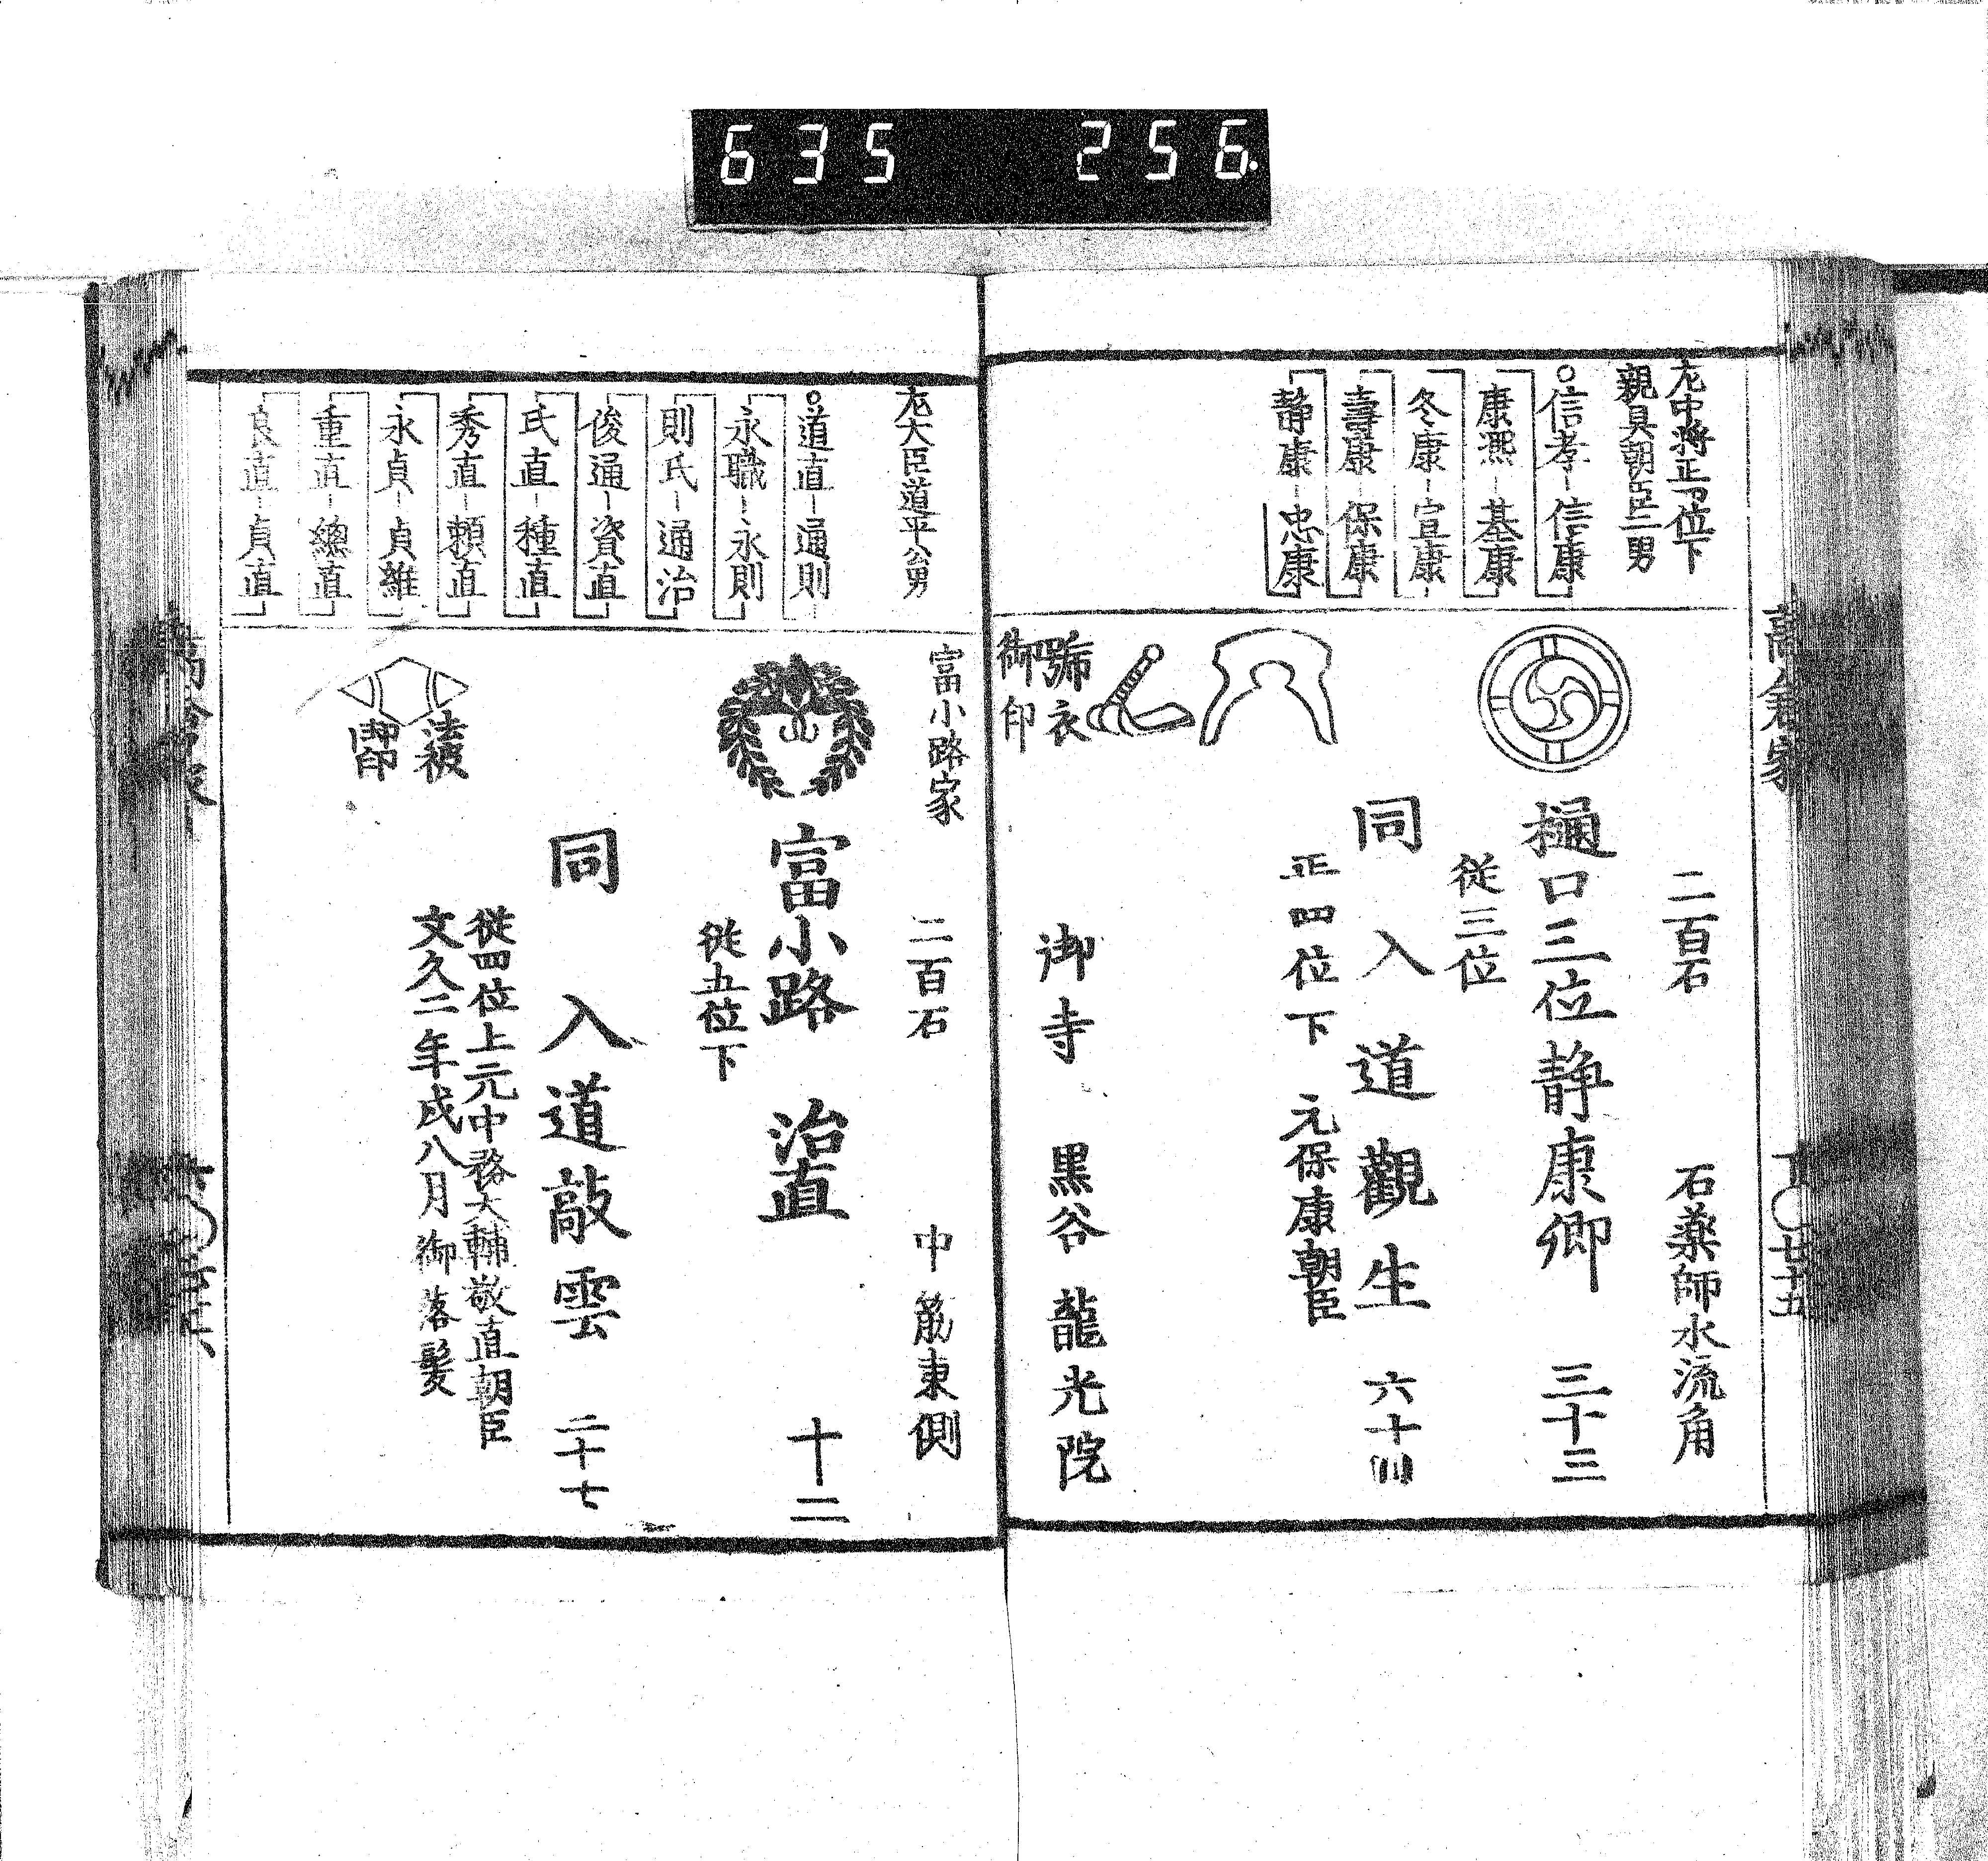 635 256
左中將正四位下
親具朝臣二男
信孝-信康
康熙-基康
冬康-宣康
壽康-保康
静康-忠康
二百石 石薬師水流角
樋口三位静康卿 三十三
從三位
同入道觀生 六十四
正四位下 元保康朝臣
號衣
御印
御寺 黒谷龍光院
左大臣道平公男
道直-通則
永職-永則
則氏-通治
俊通-資直
氏直-種直
秀直-頼直
永貞-貞維
重直-總直
良直-貞直
富小路家 二百石 中筋東側
富小路 治直 十二
從五位下
同入道敲雲 二十七
從四位上元中務大輔敬直朝臣
文久二年戌八月御落髪
法被
御印